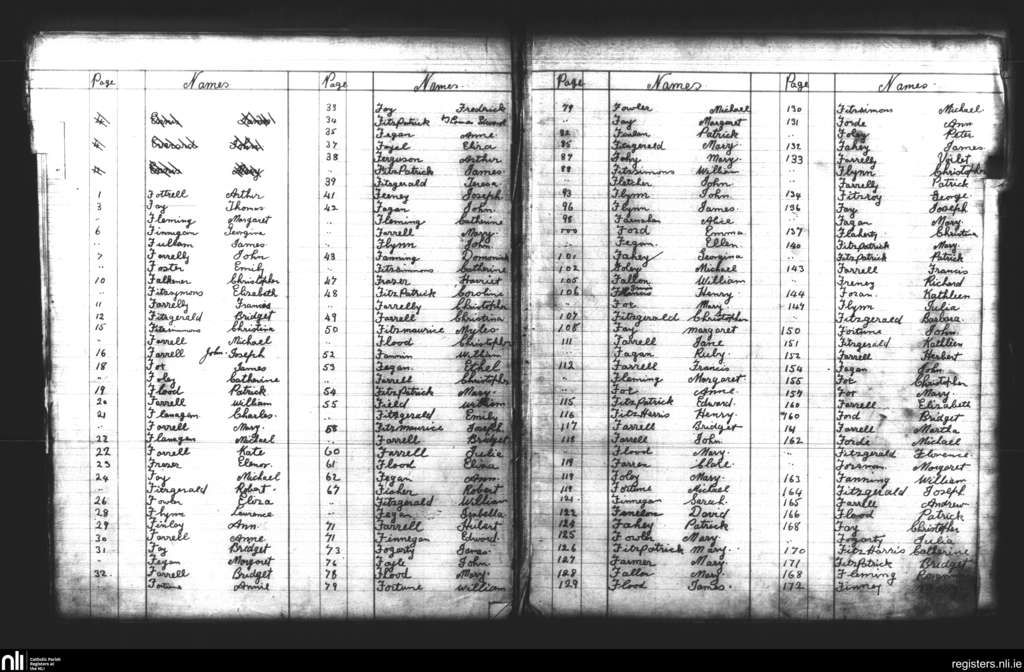 Page Names Page Names
33 Foy Fredrick
34 FitzPatrick
35 Fegan Anne
37 Foyel Eliza
38 Ferguson Arthur
" FitzPatrick James
39 Fitzgerald Teresa
1 Fottrell Arthur 41 Feeney Joseph
3 Foy Thomas 42 Fagan John
" Fleming Margaret " Fleming Catherine
6 Finnegan Georgine " Farrell Mary
" Fullam James " Flynn John
7 Farrelly John 43 Fanning Domonick
" Foster Emily " Fitzsimmons Catherine
10 Falkner Christopher 47 Fraser Harriet
" Fitzsymons Elizabeth 48 FitzPatrick Caroline
11 Farrelly Francis " Farrelly Christopher
12 Fitzgerald Bridget 49 Farrell Christina
15 Fitzsimmons Christina 50 Fitzmaurice Myles
" Farrell Michael " Flood Christopher
16 Farrell John Joseph 52 Fannin William
18 Fox James 53 Fegan Ethel
" Foley Catherine " Farrell Christopher
19 Flood Patrick 54 FitzPatrick Mary
20 Farrell William 55 Field William
21 Flanagan Charles " Fitzgerald Emily
" Farrell Mary 58 Fitzmaurice Joseph
22 Flanagan Michael " Farrell Bridget
22 Farrell Kate 60 Farrell Julia
23 Fraser Elenor 61 Flood Elina
24 Foy Michael 62 Fegan Ann
" Fitzgerald Robert 67 Fisher Robert
26 Eliza " Fitzgerald William
28 Flynn Laurence " Fegan Isabella
29 Finlay Ann 71 Farrell Hubert
30 Farrell Anne 71 Finnegan Edward
31 Foy Bridget 73 Fogarty James
" Fegan Margaret 76 Fayle John
32 Farrell Bridget 78 Flood Mary
" Fortune Annie 79 Fortune William
Page Names Page Names
79 Fowler Michael 130 Fitzsimons Michael
" Fay Margaret 131 Forde Ann
82 Patrick " Foley Peter
85 Fitzgerald Mary 132 Fahey James
87 Fahy Mary 133 Farrelly Violet
88 Fitzsimons William " Flynn Christopher
" Fletcher John " Farrelly Patrick
93 Flynn John 134 Fitzroy George
96 Flynn James 136 Fay Joseph
98 Alice " Fagan Mary
100 Ford Emma 137 Flaherty Christina
" Fegan Ellen 140 FitzPatrick Mary
101 Fahey Georgina " FitzPatrick Patrick
102 Foley Michael 143 Farrell Francis
105 Fallon William " Freney Richard
106 Henry 144 Foran Kathleen
" Fox Mary 147 Flynn Julia
107 Fitzgerald Christopher " Fitzgerald Barbara
108 Fay Margaret 150 Fortune John
111 Farrell Jane 151 Fitzgerald Kathleen
" Fagan Ruby 152 Farrell Herbert
112 Farrell Francis 154 Fagan John
" Fleming Margaret 155 Fox Christopher
" Fox Anne 157 Fox Mary
115 FitzPatrick Edward 160 Farrell Elizabeth
116 FitzHarris Henry 760 Ford Bridget
117 Farrell Bridget Farrell Martha
118 Farrell John 162 Forde Michael
" Flood Mary " Fitzgerald Florence
119 Farren Clare " Forman Margaret
119 Foley Mary 163 Fanning William
119 Fortune Michael 164 Fitzgerald Joseph
121 Finnegan Sarah 165 Farrell Andrew
123 Fenelon David 166 Flood Patrick
124 Fahey Patrick 168 Fay Christopher
125 Fowler Mary " Fogarty Julia
126 FitzPatrick Mary 170 FitzHarris Catherine
127 Farmer Mary 171 FitzPatrick Bridget
128 Fallon Mary 168 Fleming
129 Flood James 172 Finney
nli Catholic Parish Registers at the NLI
registers.nli.ie